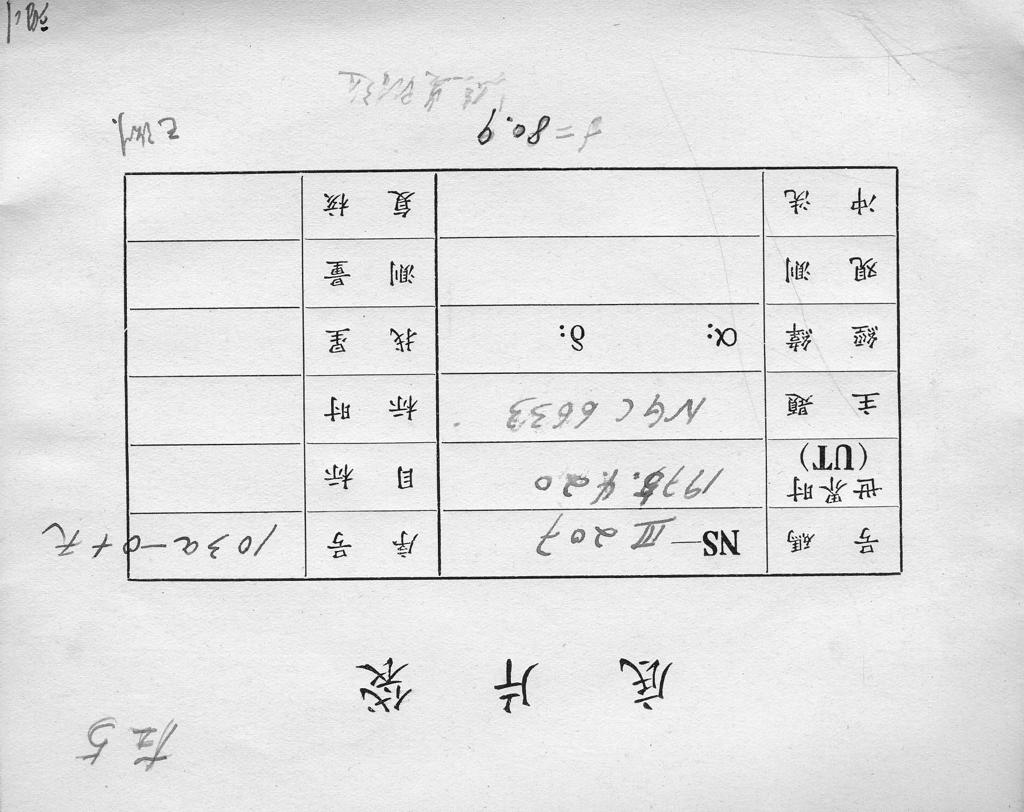 底 片 袋
号 碼 NS—III 207 序 号 103a-O+无
世界时 (UT) 1975.4.20 目 标
主 題 NGC 6633 标 时
經 緯 α: δ: 找 星
观 测 测 量
冲 洗 复 核
f=80.9 已测